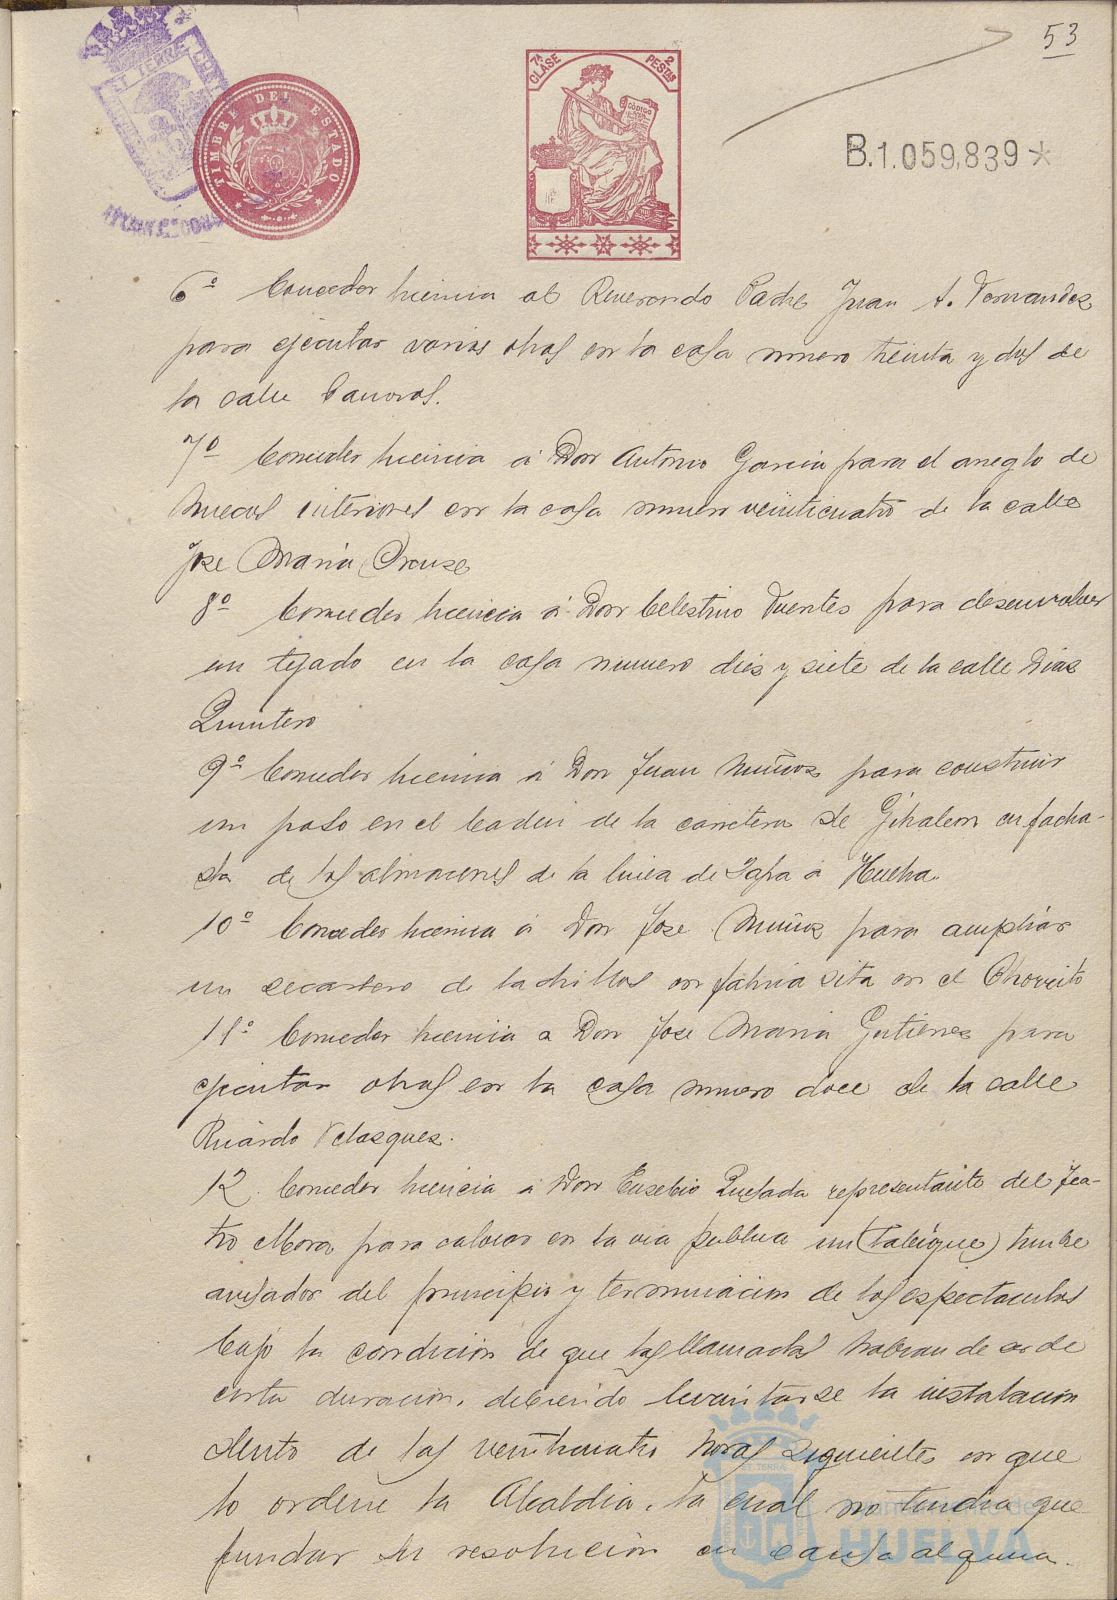 53
TIMBRE DEL ESTADO
7ª CLASE
2 PESTAS
CÓDIGO
B.1.059,839*
6º Conceder licencia al Reverendo Padre Juan A. Fernandez
para ejecutar varias obras en la casa numero treinta y dos de
la calle Canovas.
7º Conceder licencia á Don Antonio Garcia para el arreglo de
huecos interiores en la casa numero veinticuatro de la calle
Jose Maria
8º Conceder licencia á Don Celestino Fuentes para desenvolver
un tejado en la casa numero dies y siete de la calle Dias
Quintero
9º Conceder licencia á Don Juan Muñoz para construir
un paso en el de la carretera de Gibraleon en facha-
da de los almacenes de la linea de Zafra a Huelva.
10º Conceder licencia á Don Jose Muñoz para ampliar
un secadero de ladrillos en fabrica sita en el Chorrito
11º Conceder licencia a Don Jose Maria Gutierres para
ejecutar obras en la casa numero doce de la calle
Ricardo Velasques.
12. Conceder licencia á Don Eusebio Quesada representante del Tea-
tro Mora para colocar en la via publica un (tabique) timbre
avisador del principio y terminacion de los espectaculos
bajo la condicion de que las llamadas habran de ser de
corta duracion, debiendo levantarse la instalacion
dentro de las veinticuatro horas siguientes en que
lo ordene la Alcaldia, la cual no tendra que
fundar su resolucion en causa alguna.
Ayuntamiento de
HUELVA